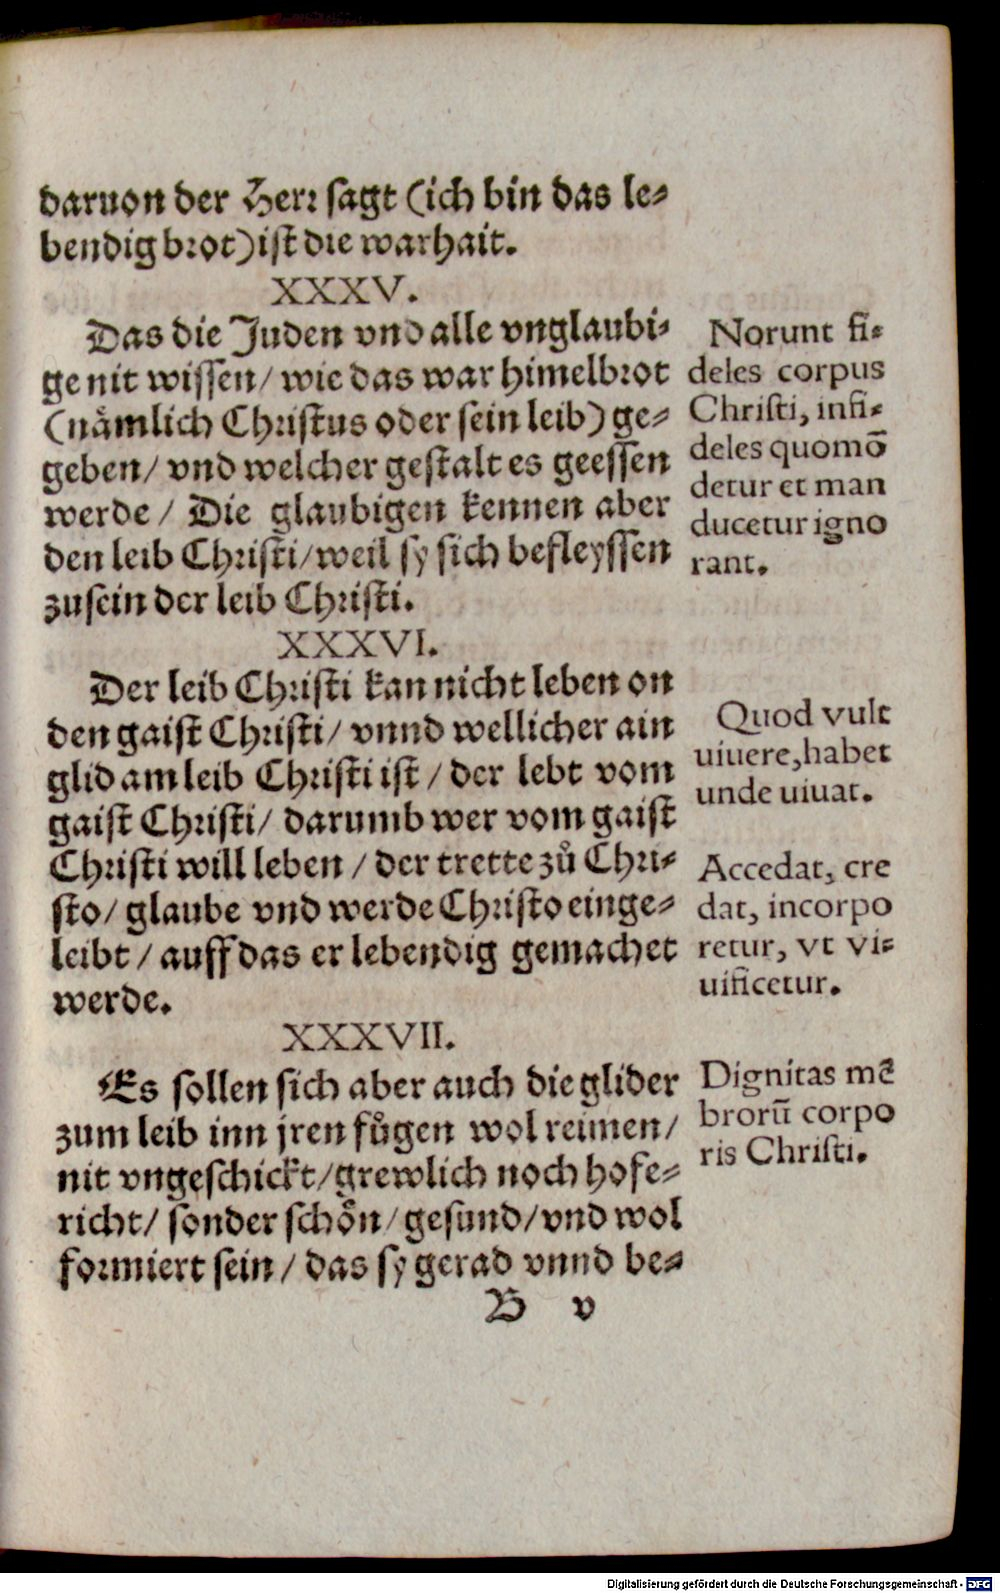 daruon der Herr sagt (ich bin das le-
bendig brot) ist die warhait.
XXXV.
Das die Juden vnd alle vnglaubi-
ge nit wissen/ wie das war himelbrot
(nämlich Christus oder sein leib) ge-
geben/ vnd welcher gestalt es geessen
werde/ Die glaubigen kennen aber
den leib Christi/ weil sy sich befleyssen
zusein der leib Christi.
XXXVI.
Der leib Christi kan nicht leben on
den gaist Christi/ vnnd wellicher ain
glid am leib Christi ist/ der lebt vom
gaist Christi/ darumb wer vom gaist
Christi will leben/ der trette zů Chri-
sto/ glaube vnd werde Christo einge-
leibt/ auff das er lebendig gemachet
werde.
XXXVII.
Es sollen sich aber auch die glider
zum leib inn jren fůgen wol reimen/
nit vngeschickt/ grewlich noch hofe-
richt/ sonder schön/ gesund/ vnd wol
formiert sein/ das sy gerad vnnd be-
B v
Norunt fi-
deles corpus
Christi, infi-
deles quomō
detur et man
ducetur igno
rant.
Quod vult
uiuere, habet
unde uiuat.
Accedat, cre
dat, incorpo
retur, vt vi-
uificetur.
Dignitas mē
brorū corpo
ris Christi.
Digitalisierung gefördert durch die Deutsche Forschungsgemeinschaft - DFG